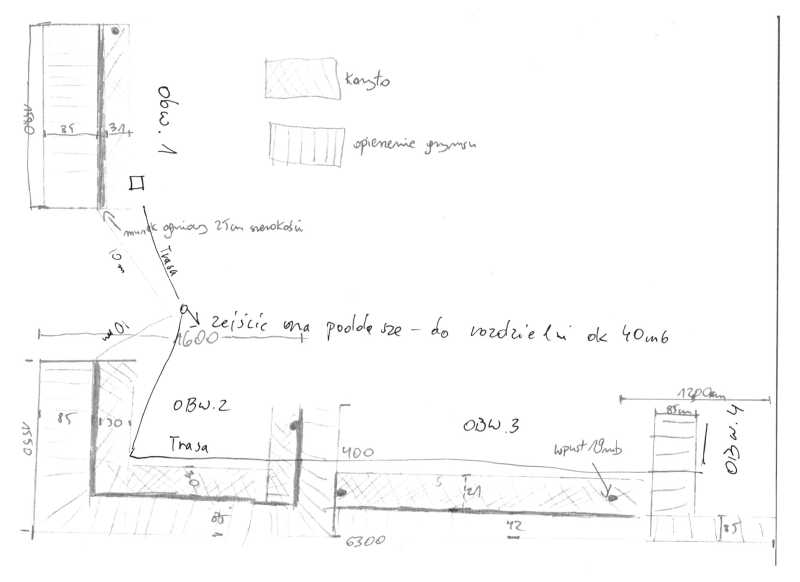 koryto
opierzenie gzymsu
1550
85
31
Obw. 1
murek ogniowy 25cm szerokości
10 m
Trasa
zejście na poddasze - do rozdzielni ok 40mb
10m
1600
1200cm
85cm
OBW. 4
OBW.2
OBW.3
1550
85
30
Trasa
400
wpust 19mb
30
S
21
85
42
85
6300